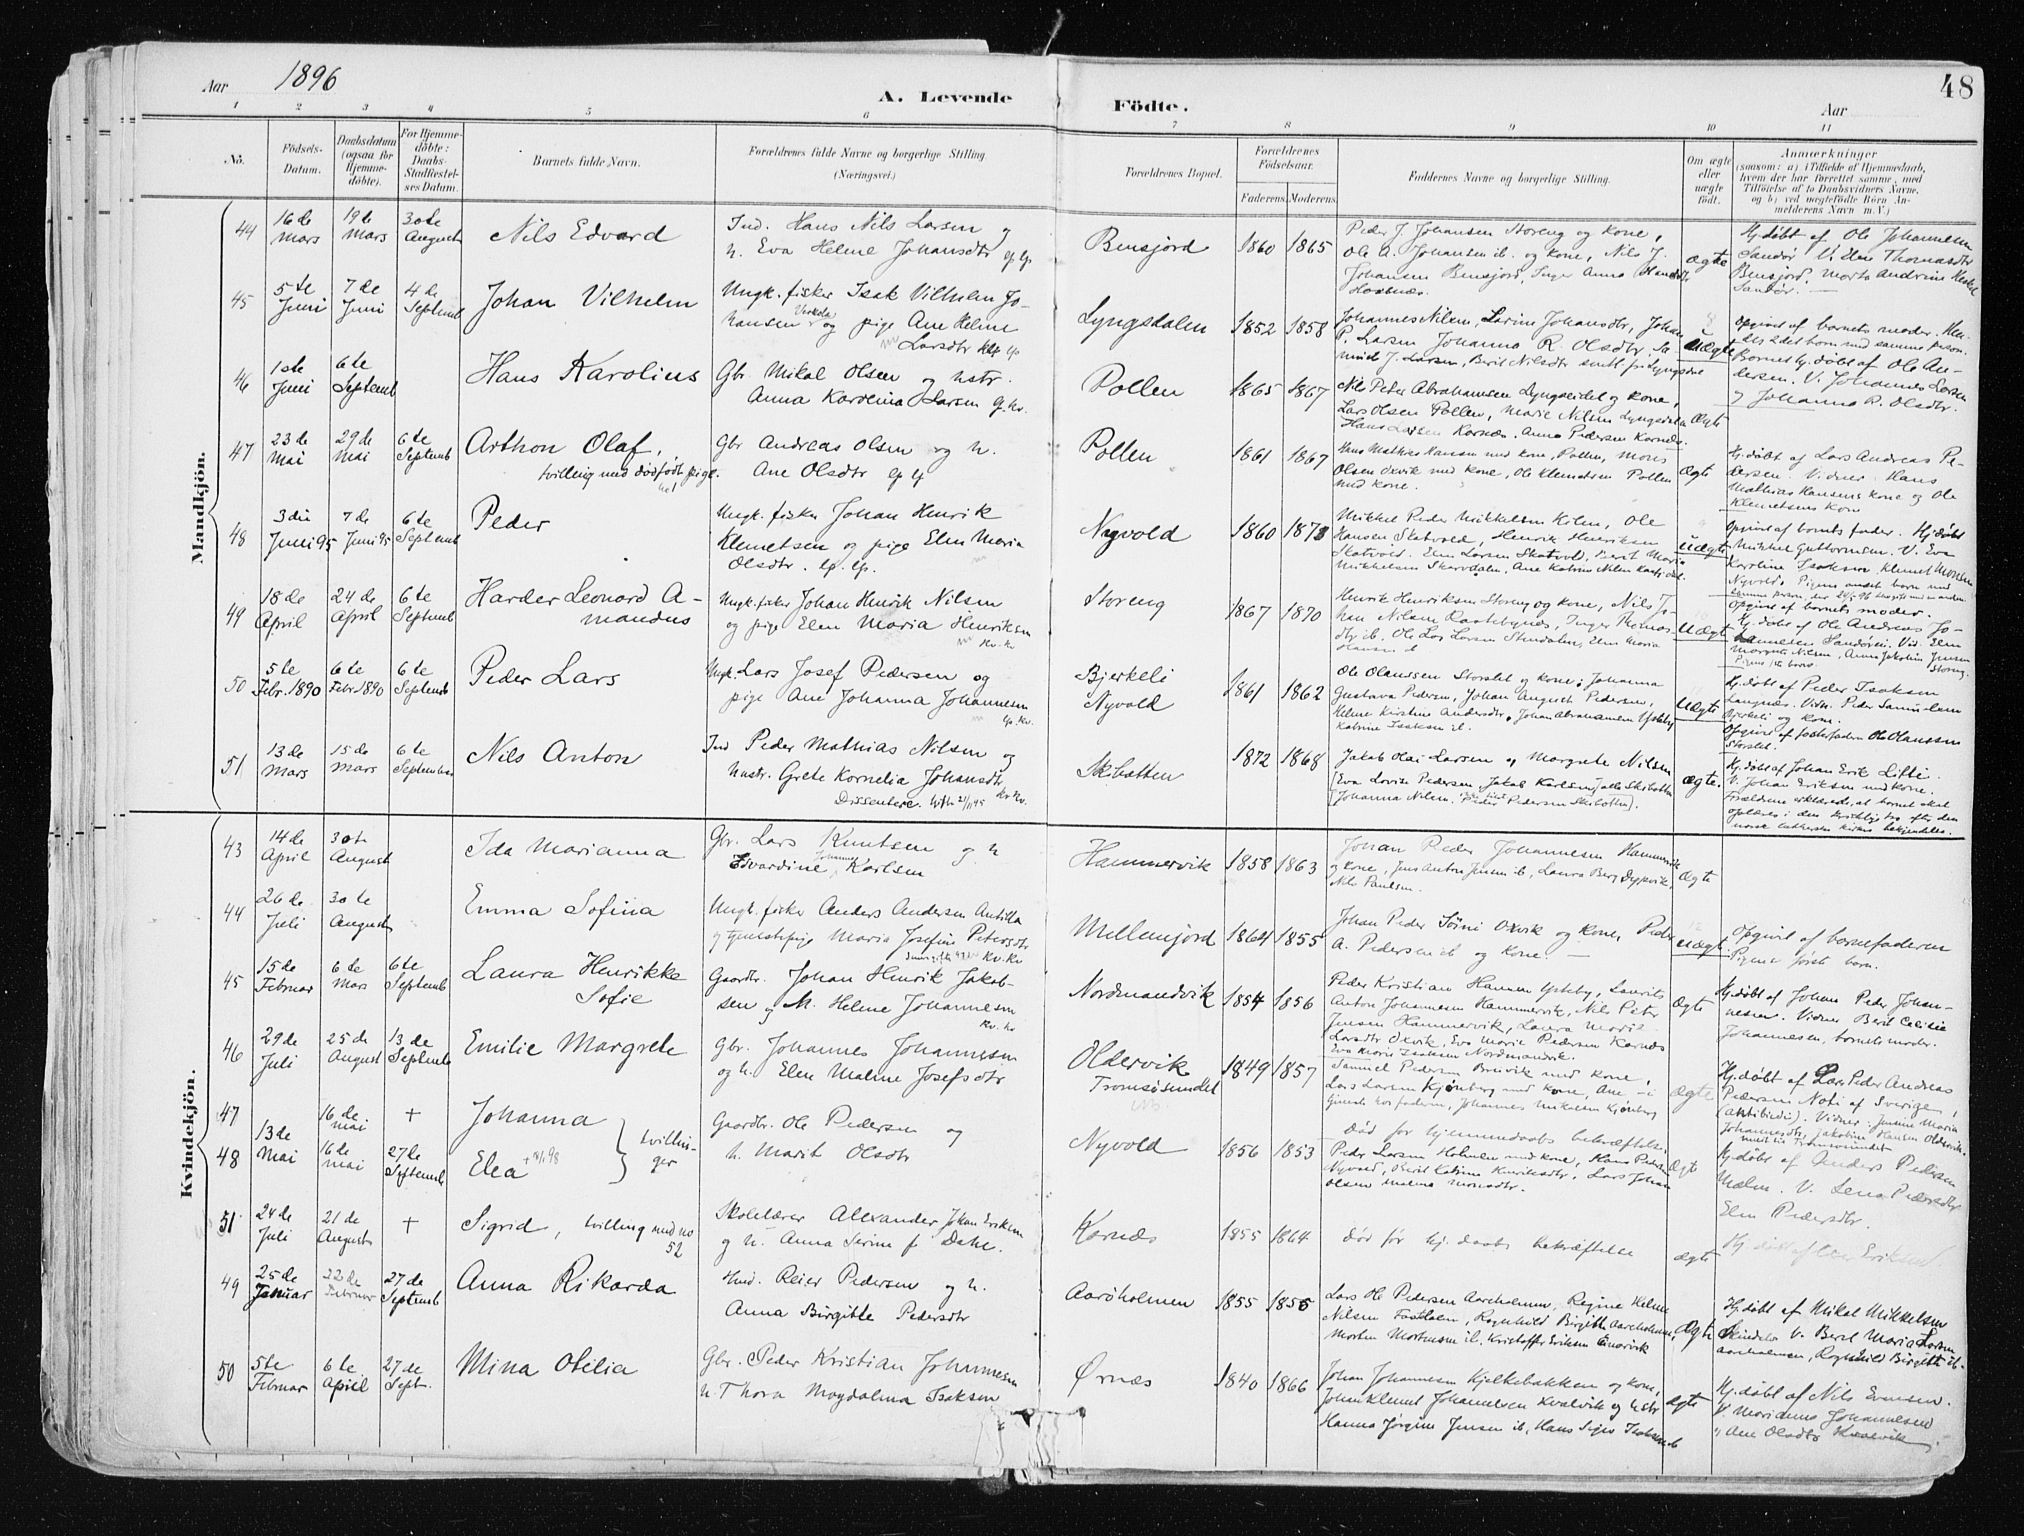 Aar 1896
A. Levende Födte.
Aar
48
1 2 3 4 5 6 7 8 9 10 11
No.
Födsels-Datum.
Daabsdatum (ogsaa for Hjemme-döbte).
For Hjemme-döbte: Daabs-Stadfæstel-ses Datum.
Barnets fulde Navn.
Forældrenes fulde Navne og borgerlige Stilling (Næringsvei.)
Forældrenes Bopæl.
Forældrenes Födselsaar.
Faderens. Moderens.
Faddernes Navne og borgerlige Stilling.
Om ægte eller uægte födt.
Anmærkninger
(saasom: a) i Tilfælde af Hjemmedaab, hvem der har forrettet samme, med Tilföielse af to Daabsvidners Navne, og b) ved uægtefödte Börn Anmelderens Navn m. V.)
Mandkjön.
44 16de Mars 19de Mars 30te August Nils Edvard
Ind. Hans Nils Larsen og
h. Eva Helene Johansdtr
Bensjord 1860 1865
Peder J. Johansen Storeng og Kone,
Ole A. Johansen ib. og Kone, Nils J.
Johansen Bensjord, Inger Anna
ægte
Hj. døbt af Ole Johannesen
Sandør V. Elen Thomasdtr
Bensjord, Marta Andrine
Sandør.
45 5te Juni 7de Juni 4de Septemb Johan Vilhelm
Ungk. fisker Isak Vilhelm Johansen og pige Ane Helene
Larsdtr
Lyngsdalen 1852 1858
Johannes Nilsen, Larine Johansdtr, Johan
P. Larsen Johanna R. Olsdtr.
J. Larsen, Berit Nilsdtr
uægte
Opgivet af barnets moder.
2det barn med samme person.
Barnet hj. døbt af Ole Andersen. V. Johannes Larsen
og Johanna R. Olsdtr.
46 1ste Juni 6te Septemb Hans Karolius
Gbr. Mikal Olsen og hstr.
Anna Karolina Larsen
Pollen 1865 1867
Nils Peder Abrahamsen Lyngseidet og Kone,
Lars Olsen Pollen, Marie Nilsen Lyngsdalen
Hans Larsen Kornæs. Anna Pedersen Kornæs.
Ægte
47 23de Mai 29de Mai 6te Septemb Arthon Olaf,
tvilling med dødfødt pige.
Gbr Andreas Olsen og h.
Ane Olsdtr
Pollen 1861 1867
Hans Mathias Hansen med kone, Pollen, Mons
Olsen Oxvik med kone, Ole Klemetsen Pollen
med kone.
Ægte
Hj. døbt af Lars Andreas Pedersen. Vidner. Hans
Mathias Hansens kone og Ole
Klemetsens kone
48 3die Juni 95 7de Juni 95 6te Septemb Peder
Ungk. fisker Johan Henrik
Klemetsen og pige Elen Maria
Olsdtr.
Nyvold 1860 1873
Mikkel Peder Mikkelsen Kilen, Ole
Hansen Skatvold, Henrik Henriksen
Skatvold. Elen Larsen Skatvold, Berit Maria
Mikkelsen Skarvdalen, Ane Katrine Nilsen
uægte
Opgivet af barnets fader. Hj. døbt
Mikkel Guttormsen. V. Eva
Karoline Isaksen Klemet Monsen
Nyvold. Pigens andet barn med
samme person
49 18de April 24de April 6te Septemb Harder Leonard Amandus
Ungk. fisker Johan Henrik Nilsen
og pige Elen Maria Henriksen
Storeng 1867 1870
Henrik Henriksen Storeng og Kone, Nils Johan Nilsen
Inger Thomasdtr ib. Ole Lars Larsen Stendalen, Elen Maria
Hansen ib
uægte
Opgivet af barnets moder.
Hj. døbt af Ole Andreas Johannesen Sandøren. Vid. Elen
Margrete Nilsen, Anna Jakobine Jensen
Storeng.
Pigens 1ste barn
50 5te Febr. 1890 6te Febr. 1890 6te Septemb Peder Lars
Ungk. Lars Josef Pedersen og
pige Ane Johanna Johannesen
Bjerkeli
Nyvold
1861 1862
Ole Olaussen Storslet og Kone; Johanna
Gustava Pedersen, Johan August Pedersen,
Helene Kirstine Andersdtr, Johan Abrahamsen Ysteby
Katrine Isaksen ib.
uægte
Hj. døbt af Peder Isaksen
Langnæs. Vidn. Peder Samuelsen
Bjerkeli og Kone.
Opgivet af fosterfaderen Ole Olaussen
Storslet.
51 13de Mars 15de Mars 6te September Nils Anton
Ind Peder Mathias Nilsen og
hustr. Grete Kornelia Johansdtr
Dissentere.
Skibotten 1872 1868
Jakob Olai Larsen og Margrete Nilsen
(Eva Lovise Pedersen, Jakob Karlsen) alle Skibotten
(Johanna Nilsen. Peder Pedersen Skibotten).
ægte.
Hj. døbt af Johan Erik Lifti.
V. Johan Eriksen med Kone.
Forældrene erklærede, at barnet skal
oplæres i den kristelige tro efter den
norsk lutherske kirkes bekjendelse.
Kvindekjön.
43 14de April 30te August Ida Marianna
Gbr. Lars Knutsen og h
Edvardine Johanna Karlsen
Hammervik 1858 1863
Johan Peder Johannesen Hammervik
og Kone, Jens Anton Jensen ib, Laura Berg Dypvik,
Nils Paulsen.
Ægte
44 26de Juli 30te August Emma Sofina
Ungk. fisker Anders Andersen Antilla
og tjenestepige Maria Josefine Petersdtr
Mellemjord 1864 1855
Johan Peder Sørni Oxvik og Kone, Peder
A. Pedersen ib og Kone.
uægte
Opgivet af barnefaderen
Pigens første barn.
45 15de Februar 6te Mars 6te Septemb Laura Henrikke Sofie
Gaardbr. Johan Henrik Jakobsen og M. Helene Johannesen
Nordmandvik 1854 1856
Peder Kristian Hansen Ysteby, Laurits
Anton Johannesen Hammervik, Nils Peter
Jensen Hammervik, Laura Marie
Larsdtr Oxvik, Eva Marie Pedersen Kornæs
Eva Marie Isaksen Nordmandvik.
ægte
Hj. døbt af Johan Peder Johannesen. Vidner Berit Cecilie
Johannesen, barnets moder.
46 29de Juli 25de August 13de Septemb Emilie Margrete
Gbr. Johannes Johannesen
og h. Elen Maline Josefsdtr
Oldervik
Tromsøsundet
1849 1857
Samuel Pedersen Breivik med Kone,
Lars Larsen Kjønberg med kone, Ane
Johannes Mikalsen Kjønberg
ægte
Hj. døbt af Lars Peder Andreas
Pedersen Noti af Sverige,
Vidner. Jensine Maria
Johannesdtr, Jakobine Hansen Oldervik
47 13de Mai 16de Mai + Johanna
48 16de Mai 27de Septemb Elea
tvillinger
Gaardbr. Ole Pedersen og
h. Marit Olsdtr
Nyvold 1856 1853
Død før hjemmedaabs bekræftelse.
Peder Larsen Holmen med Kone, Hans Peder
Nyvold, Berit Katrine Henriksdtr, Lars Johan
Olsen Malena Monsdtr.
Ægte
Hj. døbt af Anders Pedersen
Malm. V. Lena Pedersdtr
Elen Pedersdtr.
51 24de Juli 21de August + Sigrid, tvilling med no 52
Skolelærer Alexander Johan Eriksen
og h. Anna Serine f. Dahl.
Kornæs 1855 1864
død før hj. daabs bekræftelse
ægte
Hj. døbt af Eriksen.
49 25de Januar 22de Februar 27de Septemb Anna Rikarda
Hmd. Reier Pedersen og h.
Anna Birgitte Pedersdtr
Aarøholmen 1855 1855
Lars Ole Pedersen Aarøholmen, Regine Helene
Nilsen Fastdalen, Ragnhild Birgitte Aarøholmen,
Morten Mortensen ib. Kristoffer Eriksen
Ægte
Hj. døbt af Mikal Mikkelsen
V. Berit Maria Larsen
Aarøholmen, Ragnhild Birgitte ib.
50 5te Februar 6te April 27de Sept. Mina Otelia
Gbr. Peder Kristian Johannesen
h. Thora Magdalena Isaksen
Ørnæs 1840 1866
Johan Johannesen Kjelkebakken og Kone,
Johan Klemet Johannesen Kvalvik og hstr
Hanna Jørgine Jensen ib, Hans
ægte
Hj. døbt af Nils Evensen.
V. Mariana Johannesen
og Ane Olsdtr Kvalvik.